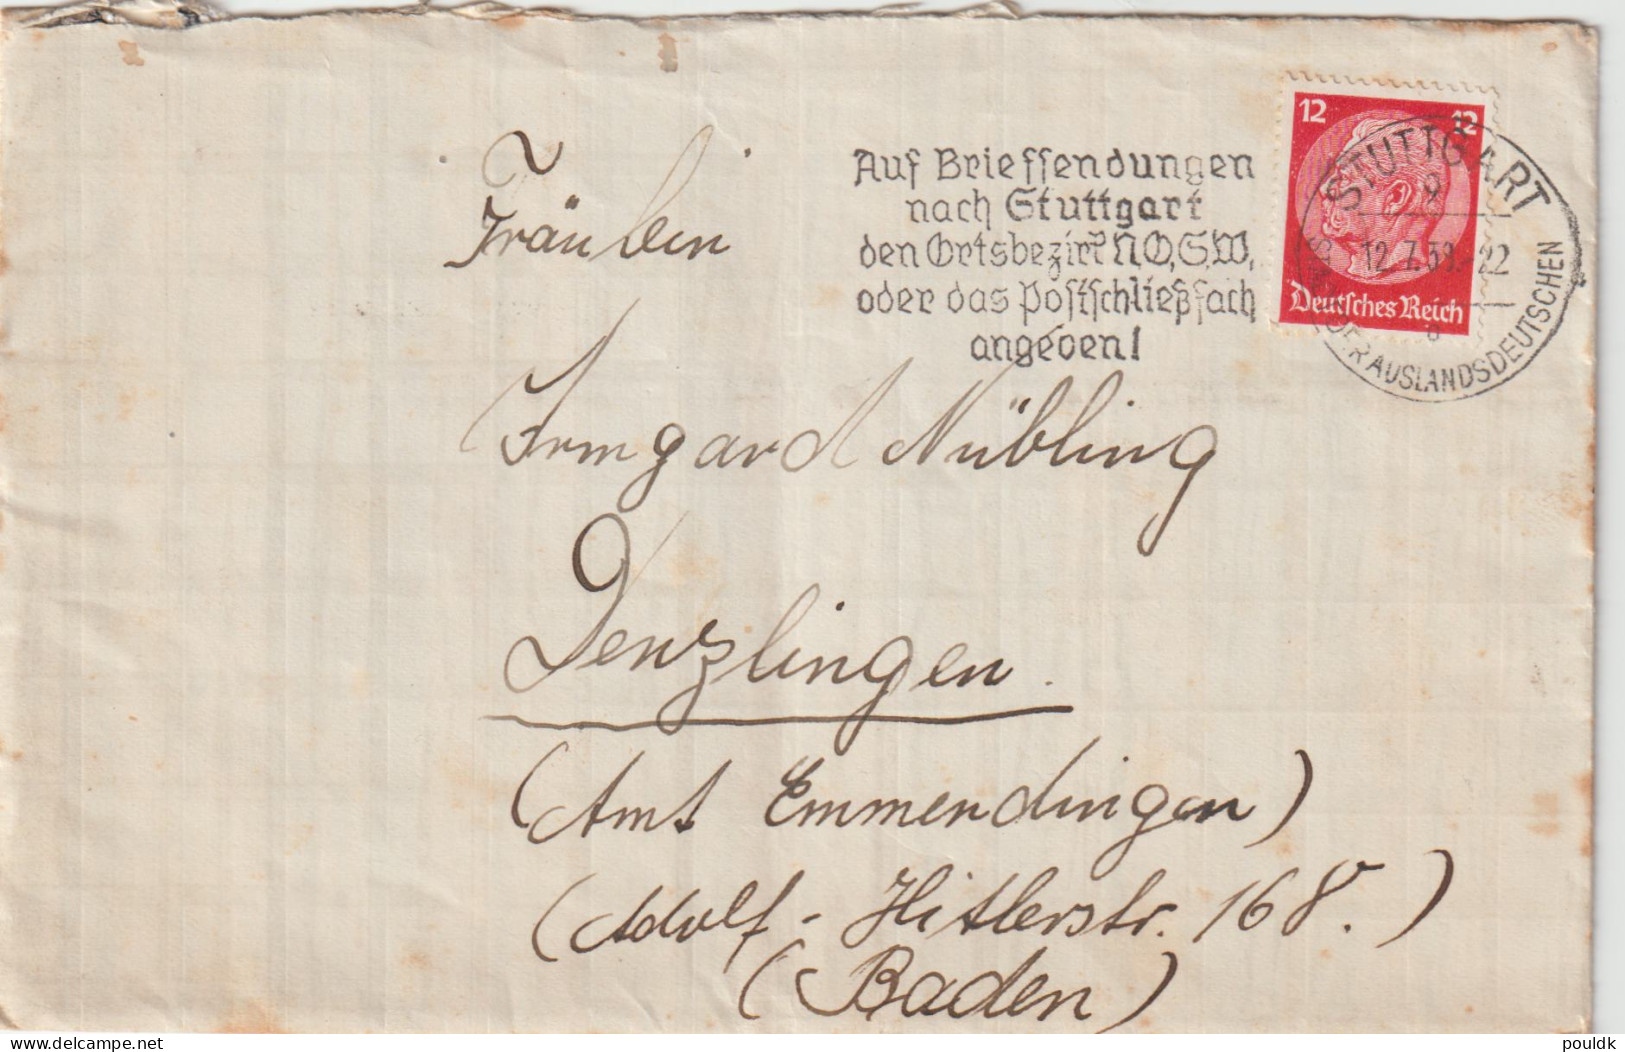 12 12
Deutsches Reich
STUTTGART
9
12.7.39.-22
DER AUSLANDSDEUTSCHEN
Auf Briefsendungen
nach Stuttgart
den Ortsbezirk N,O,S,W,
oder das Postschließfach
angeben!
Fräulein
Irmgard Nübling
Denzlingen.
(Amt Emmendingen)
(Adolf-Hitlerstr. 168.)
(Baden)
delcampe.net
pouldk